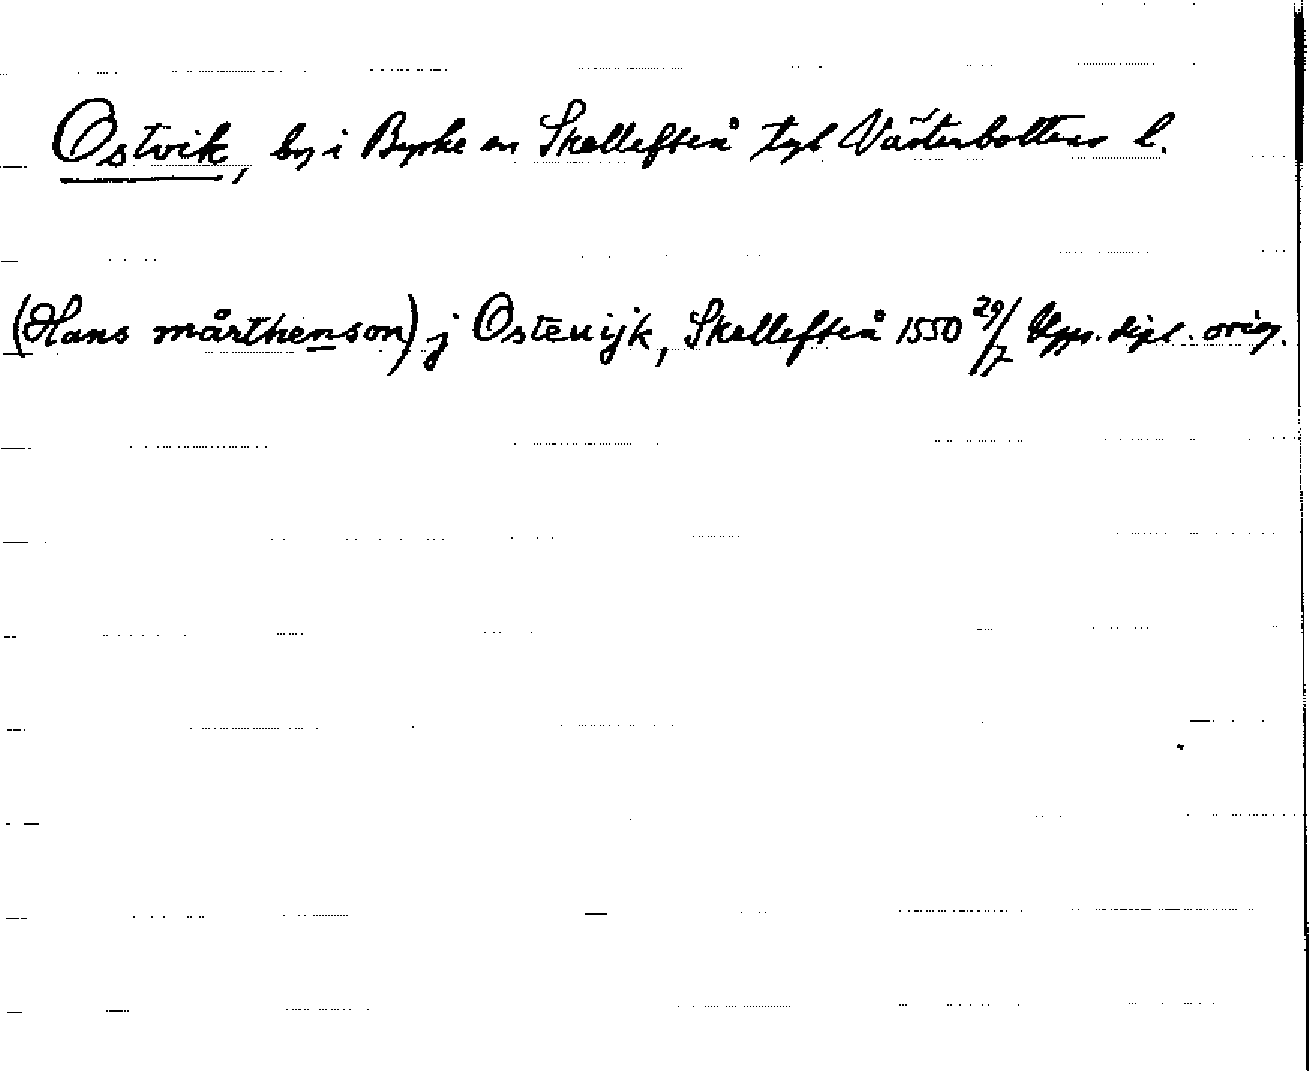 Ostvik, by i Byske sn Skellefteå tgl Västerbottens l.
(Hans mårthenson) j Osteuijk, Skellefteå 1550 29/7 Upps. dipl. orig.